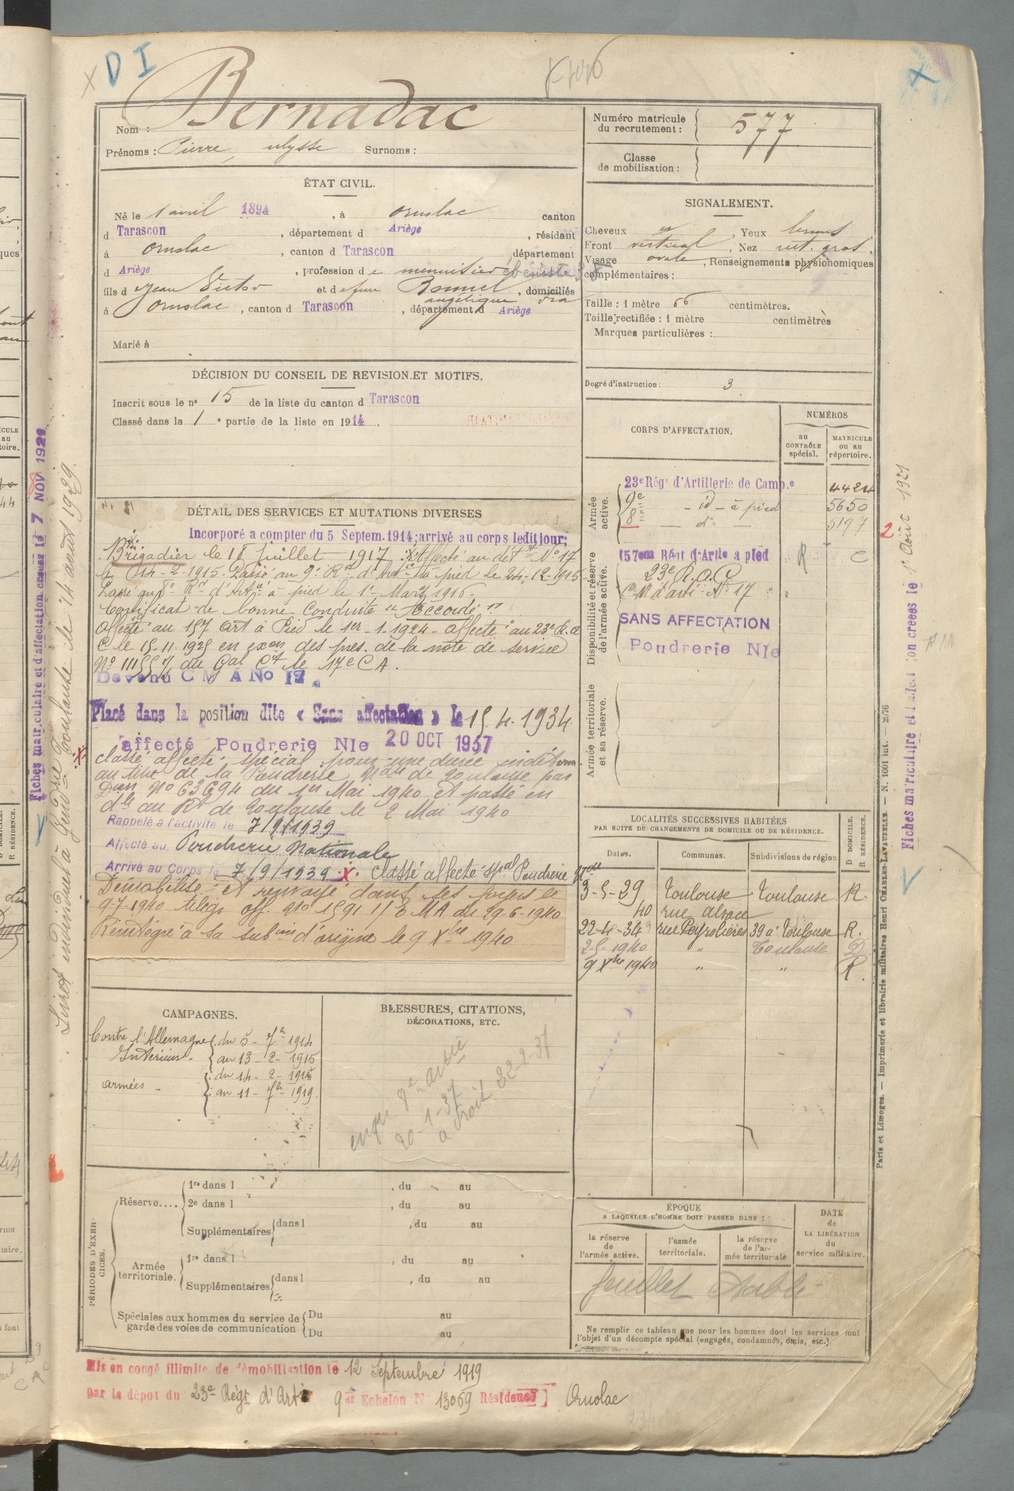 DI
Bernadac
Nom :
Prénoms : Pierre, ulysse Surnoms :
Numéro matricule du recrutement : 577
Classe de mobilisation :
ÉTAT CIVIL.
Né le 1 avril 1894, à Ornolac canton
d Tarascon, département d Ariège, résidant
à Ornolac, canton d Tarascon département
d Ariège, profession de menuisier ébéniste
fils d Jean Victor et de feue Bonnel angélique, domiciliés
à Ornolac, canton d Tarascon, département d Ariège
Marié à
SIGNALEMENT.
Cheveux, Yeux
Front vertical, Nez rect. gros.
Visage ovale, Renseignements physionomiques
complémentaires :
Taille : 1 mètre 66 centimètres.
Taille rectifiée : 1 mètre centimètres
Marques particulières :
Degré d'instruction : 3
DÉCISION DU CONSEIL DE REVISION ET MOTIFS.
Inscrit sous le n° 15 de la liste du canton d Tarascon
Classé dans la 1 e partie de la liste en 1914
CORPS D'AFFECTATION.
NUMÉROS
au CONTRÔLE spécial.
MATRICULE ou au répertoire.
Armée active.
23e Régt d'Artillerie de Camp.e 4424
9e - id - à pied 5650
8e - d° - 5197
Disponibilité et réserve de l'armée active.
157eme Régt d'Artie à pied R C
23e R.a.C
C.M d'arti N° 17
SANS AFFECTATION
Poudrerie Nle
Armée territoriale et sa réserve.
DÉTAIL DES SERVICES ET MUTATIONS DIVERSES
Incorporé à compter du 5 Septem. 1914; arrivé au corps ledit jour;
Brigadier le 18 juillet 1917
Certificat de bonne conduite "accordé"
affecté au 157 art à Pied le 1er-1-1924 - affecté au 23e R.a
C le 15-11-1925 en exon des pres. de la note de service
du Gal Ct le 17e C A.
Devenu C M A No 17.
Placé dans la position dite « Sans affectation » le 15.4.1934
affecté Poudrerie Nle 20 OCT 1937
classé affecté spécial pour une durée indéterm
au titre de la Poudrerie Nale de Toulouse par
Don N° 63694 du 1er Mai 1940 et passé en
d au Rt de Toulouse le 2 Mai 1940
Rappelé à l'activité le 7/9/1939
Affecté au Poudrerie Nationale
Arrivé au Corps le 7/9/1939. x. Classé affecté spal Poudrerie
Démobilisé et renvoyé dans ses foyers le
9-7-1940 télég. off. du 29-6-1940
Réintègre sa subon d'origine le 9 Xbre 1940
LOCALITÉS SUCCESSIVES HABITÉES
PAR SUITE DE CHANGEMENTS DE DOMICILE OU DE RÉSIDENCE.
Dates. Communes. Subdivisions de région D DOMICILE. R RÉSIDENCE.
3-5-29 Toulouse Toulouse R
40 rue alsace
22-4-34 rue Peyrolières 39 à Toulouse R.
2-5-1940 " Toulouse D
9 Xbre 1940 " " R.
CAMPAGNES.
Contre l'Allemagne
Intérieur. du 5 - 7bre 1914
au 13 - 2 - 1915
armées - du 14 - 2 - 1915
au 11 - 7bre 1919
BLESSURES, CITATIONS, DÉCORATIONS, ETC.
20-1-37
PÉRIODES D'EXERCICES.
Réserve.... 1re dans l , du au
2e dans l , du au
Supplémentaires dans l , du au
Armée territoriale. 1re dans l , du au
Supplémentaires dans l , du au
Spéciales aux hommes du service de garde des voies de communication Du au
Du au
ÉPOQUE
A LAQUELLE L'HOMME DOIT PASSER DANS :
la réserve de l'armée active.
l'armée territoriale.
la réserve de l'armée territoriale
DATE de LA LIBÉRATION du service militaire.
feuillet double
Ne remplir ce tableau que pour les hommes dont les services font l'objet d'un décompte spécial (engagés, condamnés, omis, etc.).
Mis en congé illimité de démobilisation le 12 Septembre 1919
par le dépôt du 23e Régt d'Art 9e Echelon N° 13069 Résidence Ornolac
Fiches matriculaire et d'affectation créées le 7 NOV 1921
Livret individuel à Gendrie Toulouse le 14 août 1929.
Fiches matriculaire et d'affectation créées le 1 Août 1921
Paris et Limoges. — Imprimerie et librairie militaires Henri CHARLES-LAVAUZELLE.